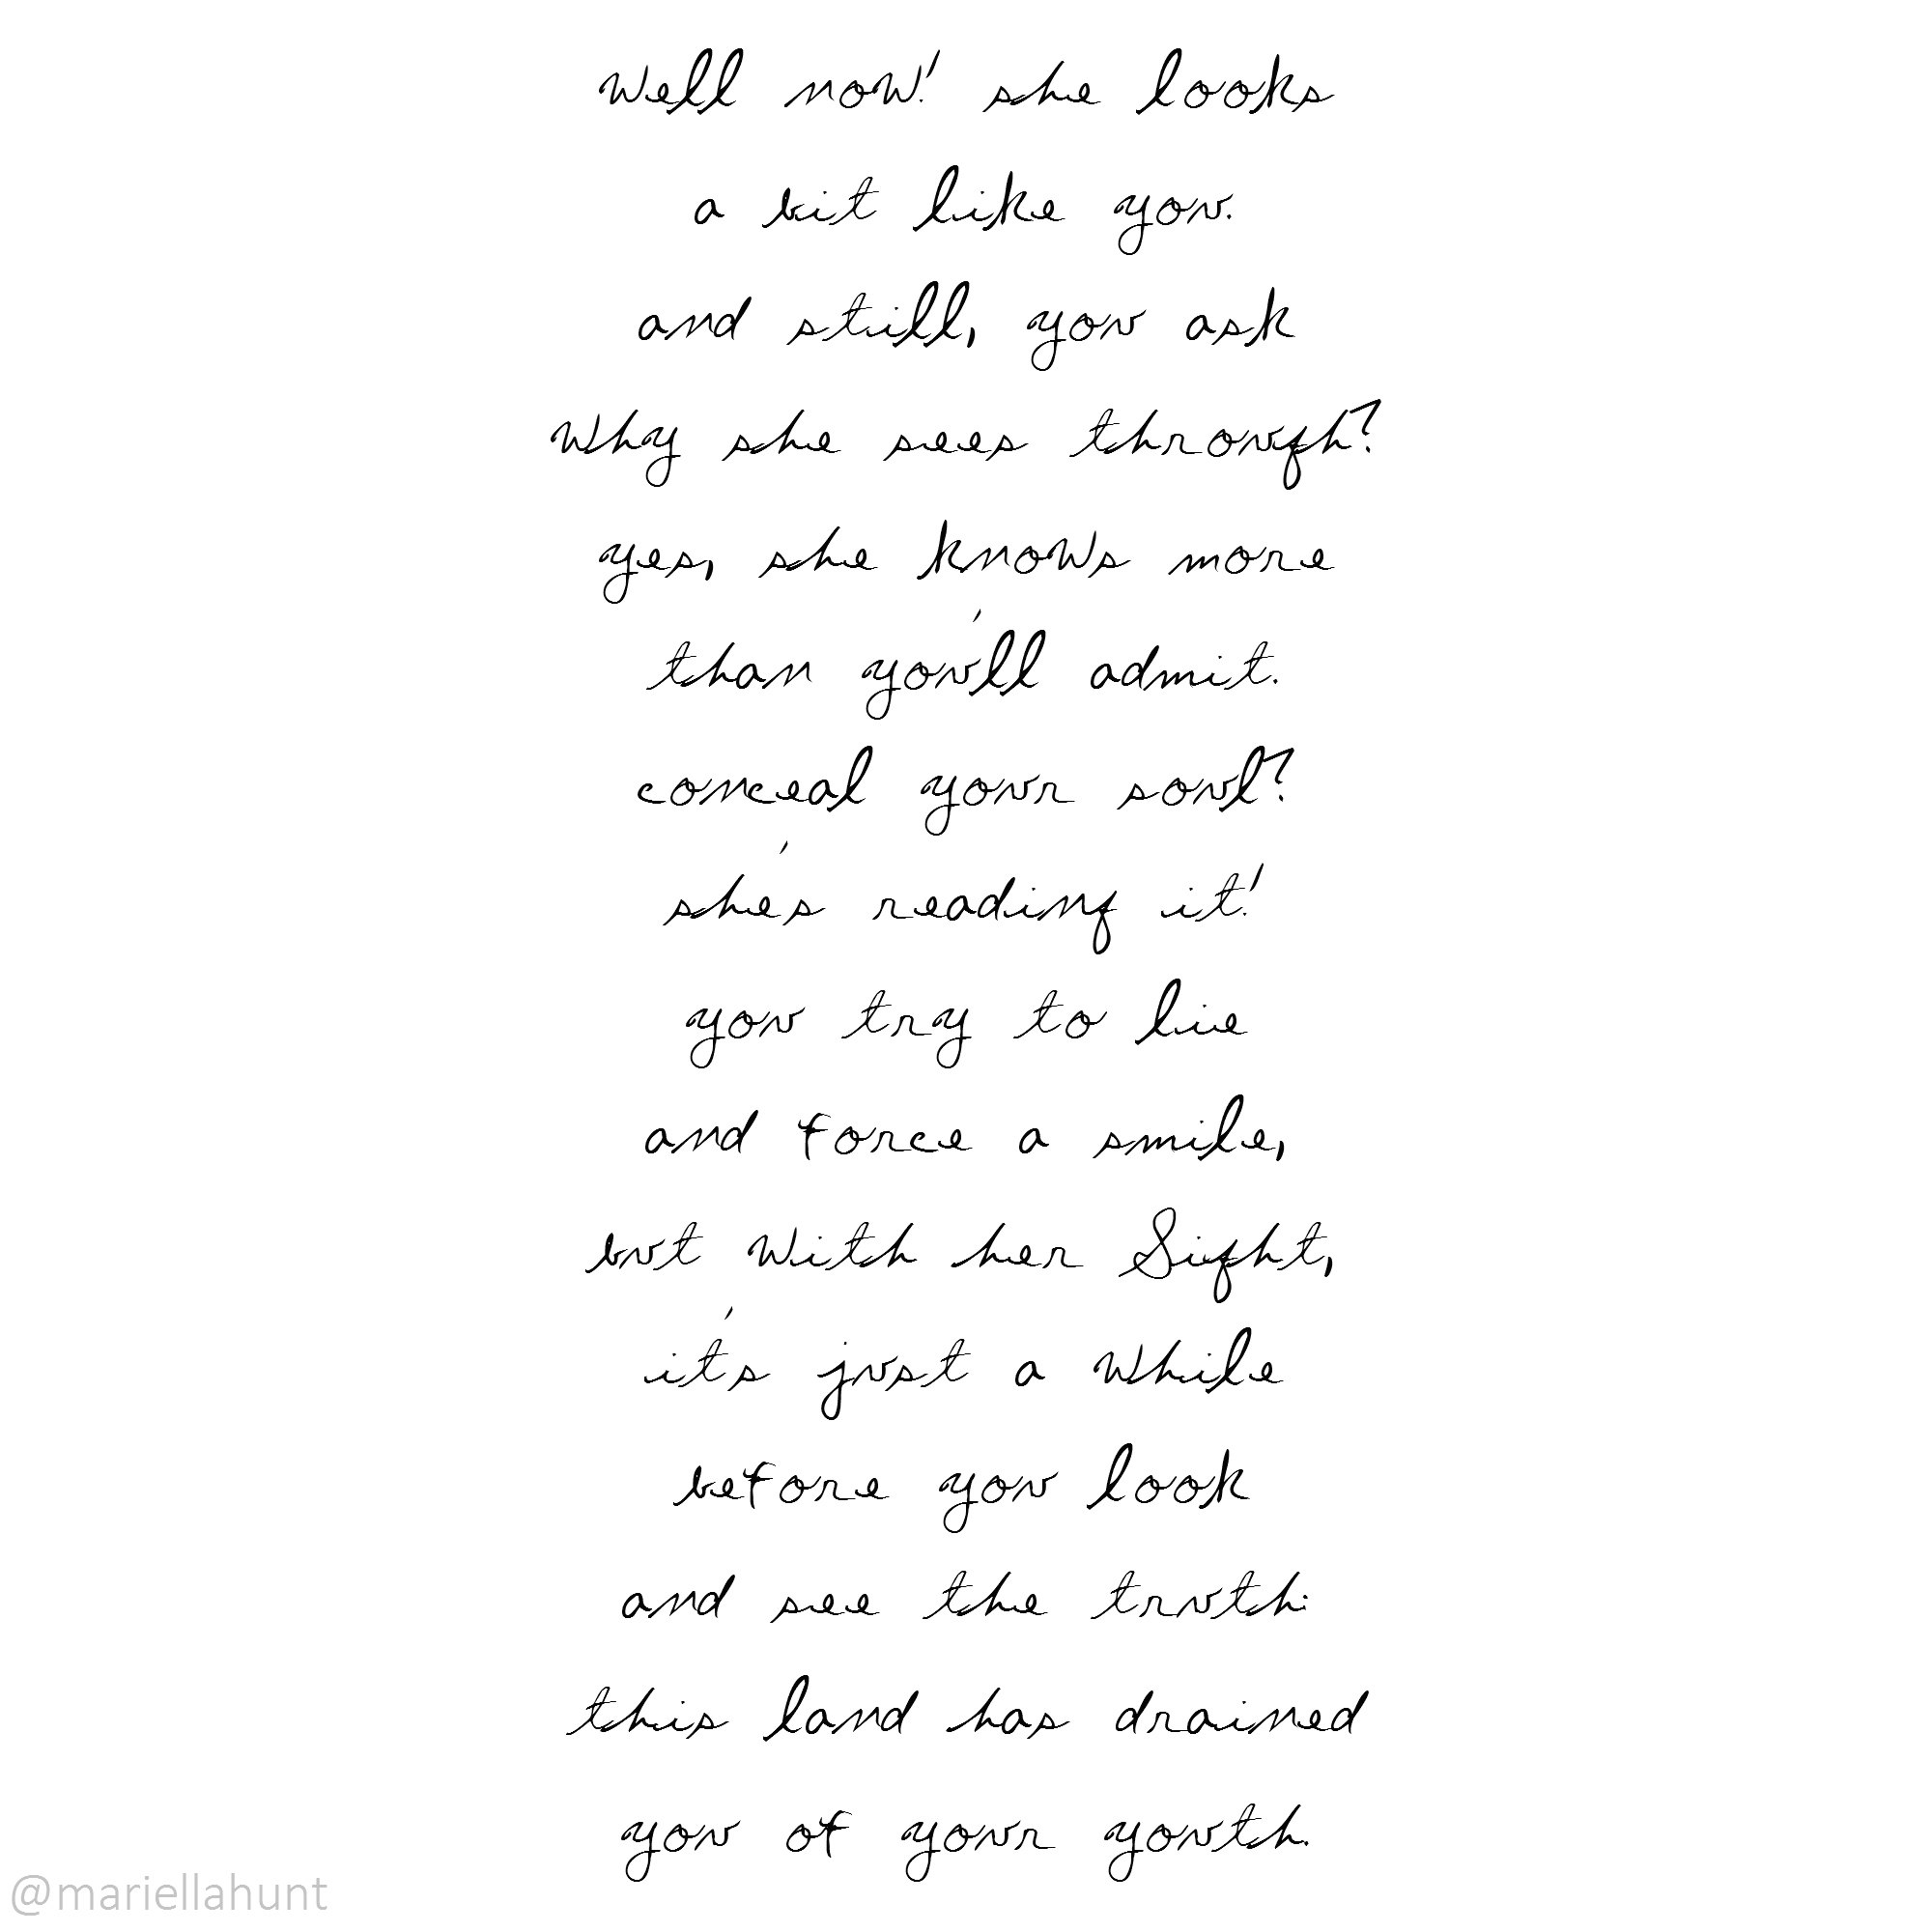 Well now! she looks
a bit like you.
and still, you ask
Why she sees through?
yes, she knows more
than you'll admit.
conceal your soul?
she's reading it!
you try to lie
and force a smile,
but with her Sight,
it's just a while
before you look
and see the truth:
this land has drained
you of your youth.
@mariellahunt